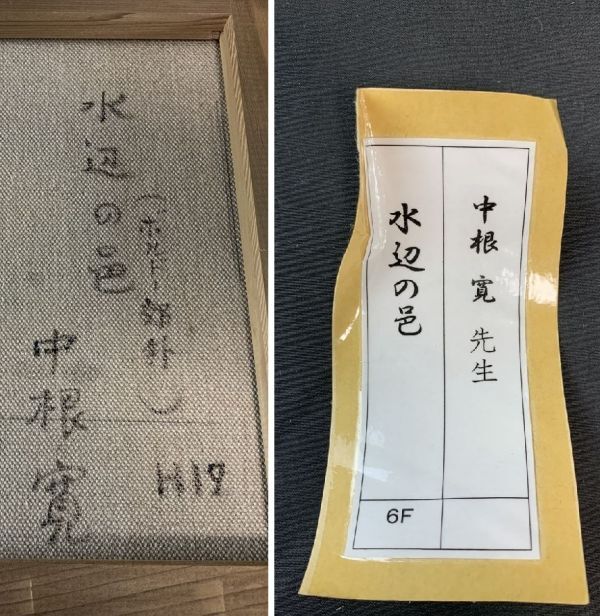 水辺の邑
（ボルドー郊外）
中根寛
中根 寛 先生
水辺の邑
6F